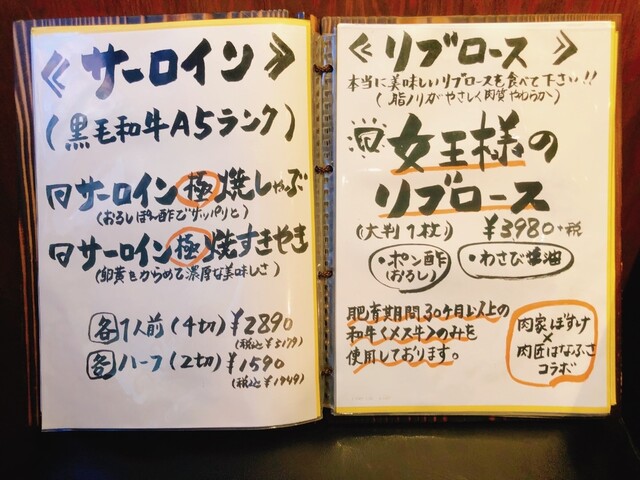 《サーロイン》
(黒毛和牛A5ランク)
サーロイン極焼しゃぶ
(おろしぽん酢でサッパリと)
サーロイン極焼すきやき
(卵黄をからめて濃厚な美味しさ)
各1人前(4切)¥2890
(税込¥3179)
各ハーフ(2切)¥1590
(税込¥1749)
《リブロース》
本当に美味しいリブロースを食べて下さい!!
(脂ノリがやさしく肉質やわらか)
女王様の
リブロース
(大判1枚) ¥3980+税
・ポン酢(おろし) ・わさび醤油
肥育期間30ヶ月以上の
和牛《メス牛》のみを
使用しております。
肉家ぽすけ
×
肉匠はなふさ
コラボ